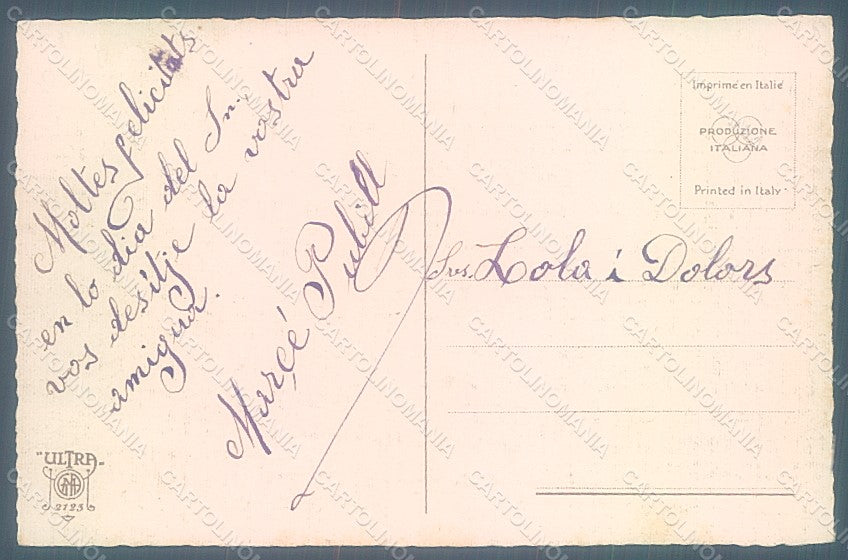 Moltes felicitats
en lo dia del Sn.
vos desitje la vostra
amigua.
Marçé Pubill
Srs. Lola i Dolors
Imprimé en Italie
PRODUZIONE
ITALIANA
Printed in Italy
"ULTRA"
2123
CARTOLINOMANIA